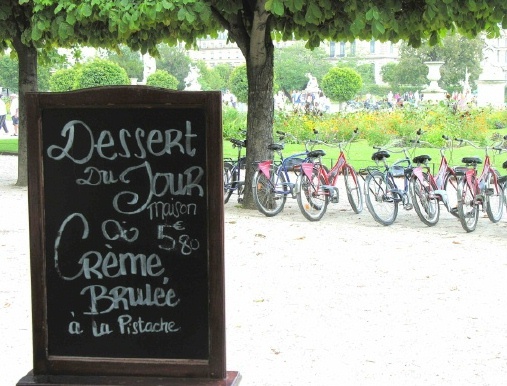 Dessert
Du Jour
maison
5€80
Crème
Brulée
à la Pistache